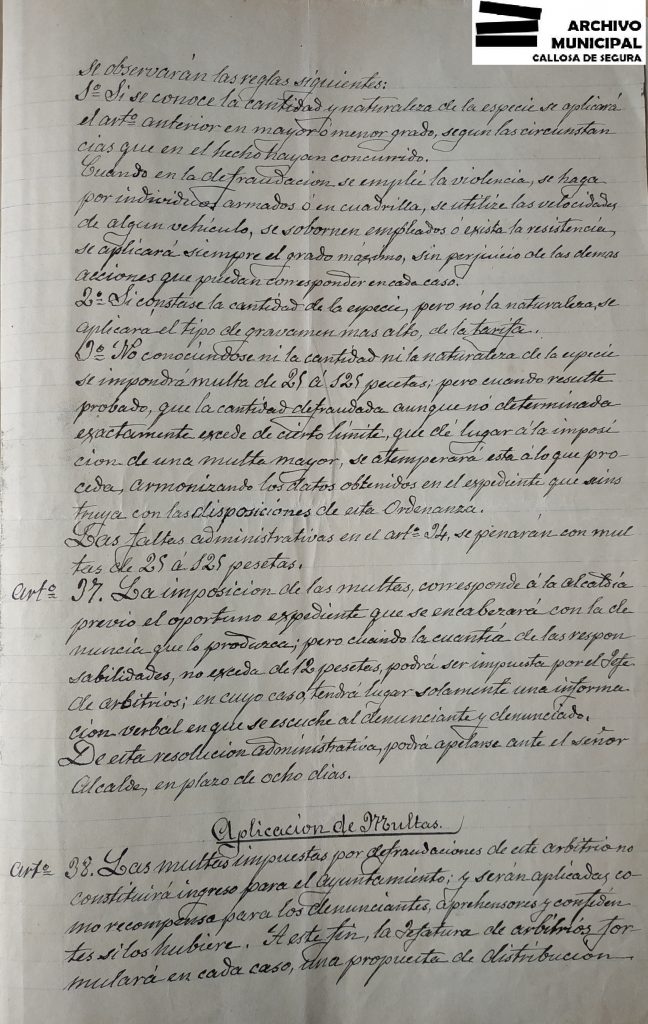 ARCHIVO
MUNICIPAL
CALLOSA DE SEGURA
se observarán las reglas siguientes:
1º Si se conoce la cantidad y naturaleza de la especie se aplicará
el artº anterior en mayor ó menor grado, segun las circunstan
cias que en el hecho hayan concurrido.
Cuando en la defraudacion se emplée la violencia, se haga
por individuos armados ó en cuadrilla, se utilize las velocidades
de algun vehículo, se sobornen empleados o exista la resistencia,
se aplicará siempre el grado máximo, sin perjuicio de las demas
acciones que puedan corresponder en cada caso.
2º Si constase la cantidad de la especie, pero nó la naturaleza, se
aplicará el tipo de gravamen mas alto, de la tarifa.
3º No conociéndose ni la cantidad ni la naturaleza de la especie
se impondrá multa de 25 á 125 pesetas; pero cuando resulte
probado, que la cantidad defraudada aunque nó determinada
exactamente excede de cierto límite, que dé lugar á la imposi
cion de una multa mayor, se atemperará esta a lo que pro
ceda, armonizando los datos obtenidos en el expediente que se ins
truya con las disposiciones de esta Ordenanza.
Las faltas administrativas en el artº 34, se penarán con mul
tas de 25 á 125 pesetas.
Artº 37. La imposicion de las multas, corresponde á la alcaldía
previo el oportuno expediente que se encabezará con la de
nuncia que lo produzca; pero cuando la cuantía de las respon
sabilidades, no exceda de 12 pesetas, podrá ser impuesta por el Jefe
de arbitrios; en cuyo caso, tendrá lugar solamente una informa
cion verbal en que se escuche al denunciante y denunciado.
De esta resolucion administrativa, podrá apelarse ante el señor
Alcalde, en plazo de ocho dias.
Aplicacion de Multas.
Artº 38. Las multas impuestas por defraudaciones de este arbitrio no
constituirá ingreso para el Ayuntamiento; y serán aplicadas co
mo recompensa para los denunciantes, aprehensores y confiden
tes si los hubiere. A este fin, la Jefatura de arbitrios for
mulará en cada caso, una propuesta de distribución